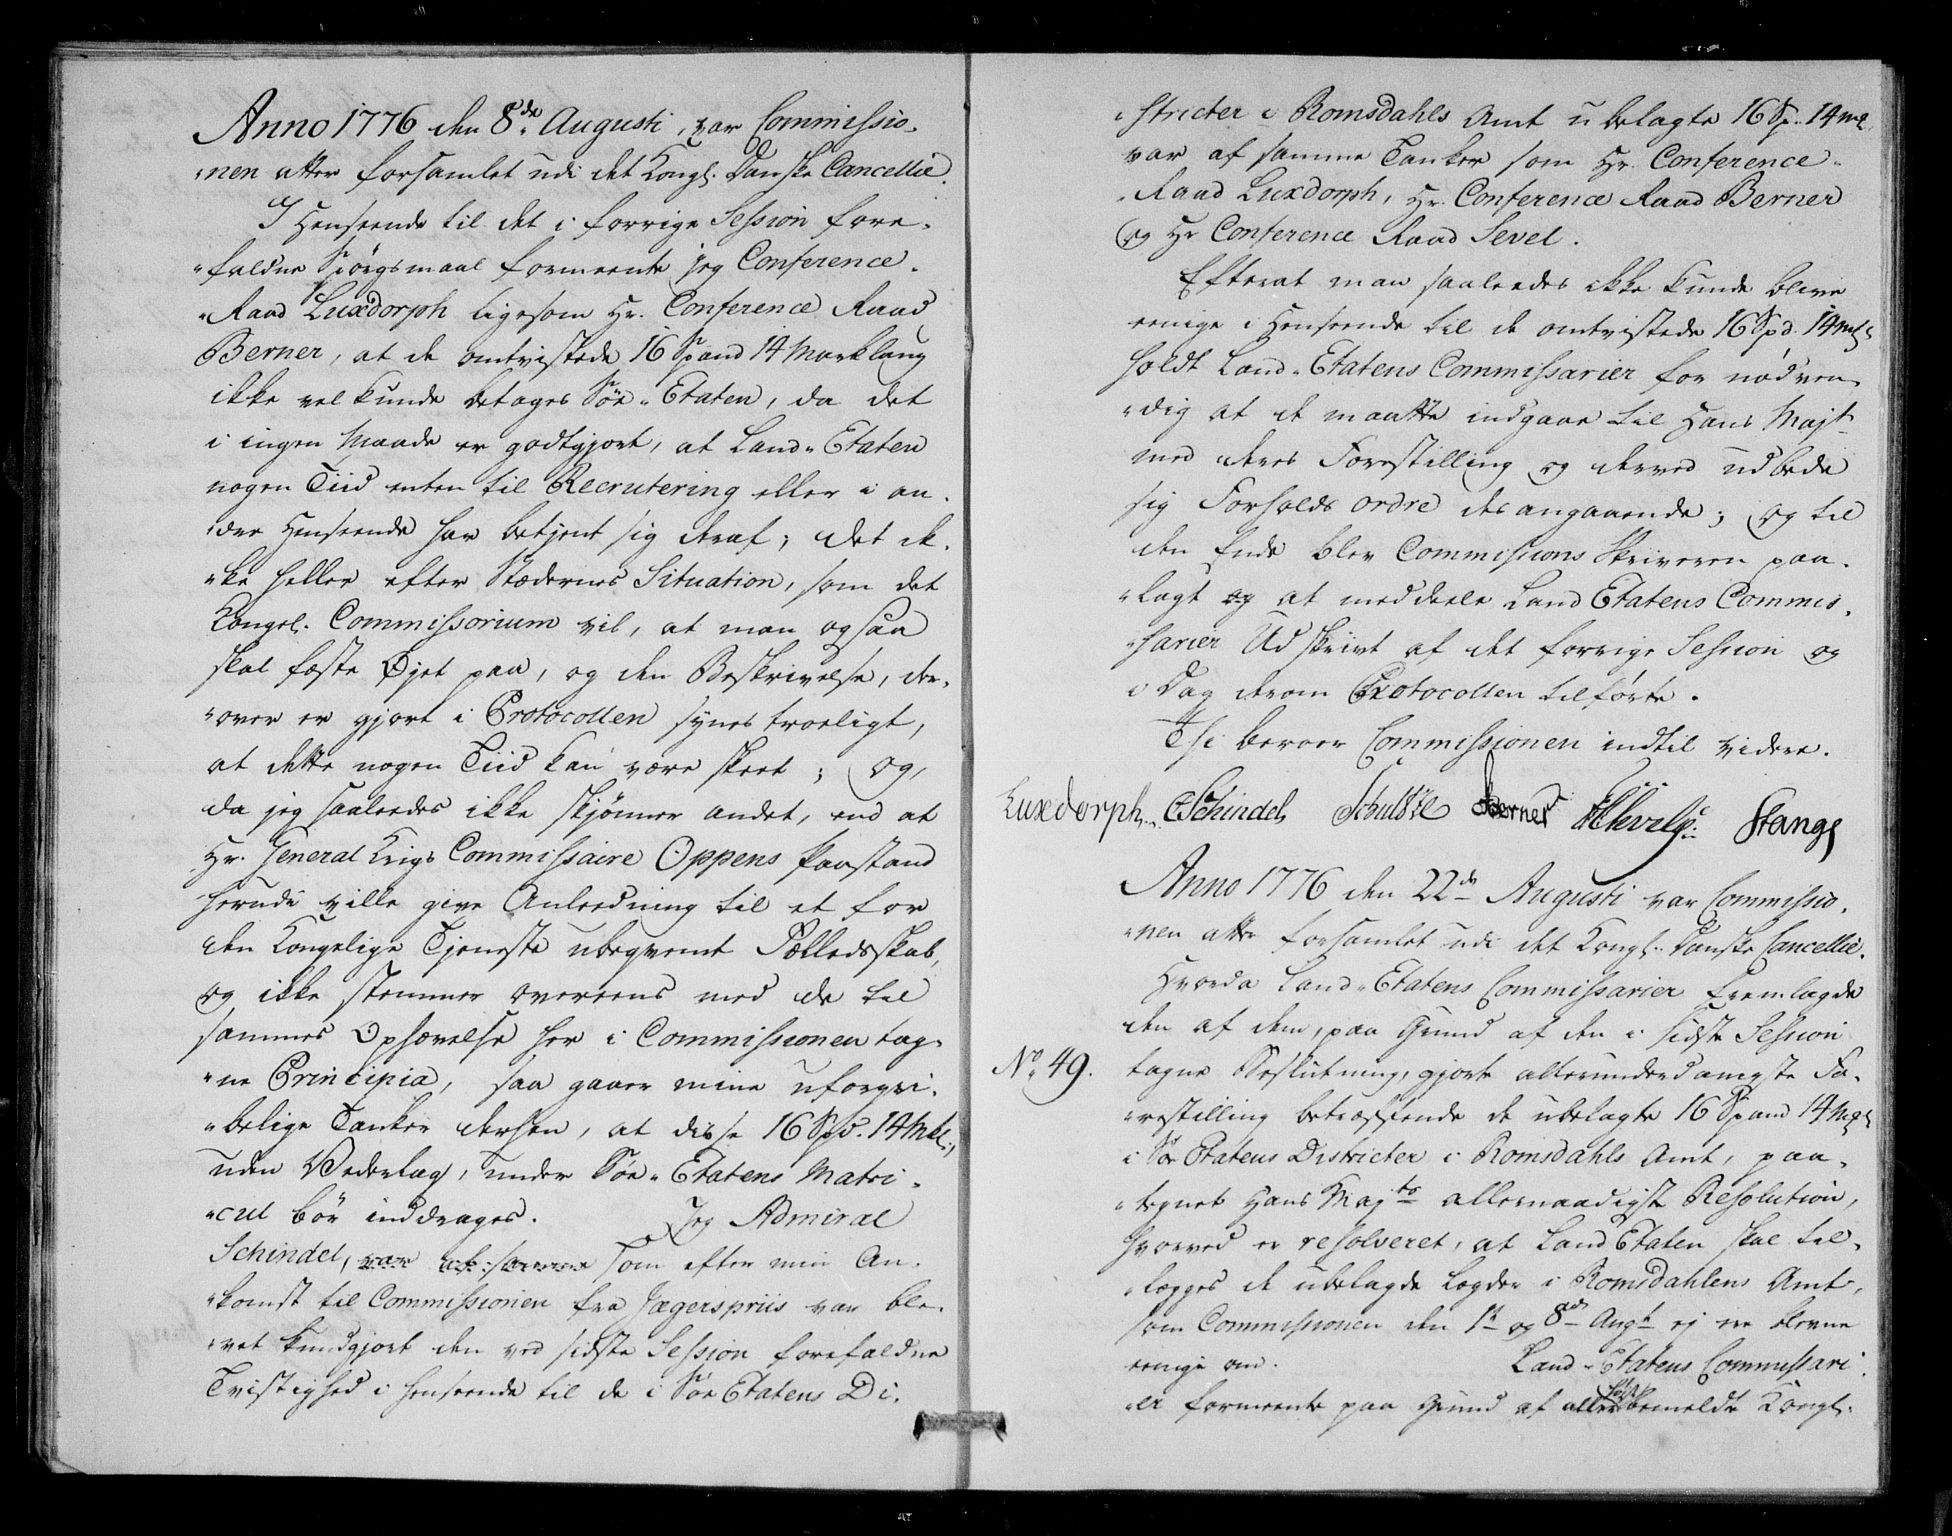 Anno 1776 den 8de Augusti, var Commissio-
"nen atter forsamlet udi det Kongl. Danske Cancellie.
I Henseende til det i forrige Session fore-
"faldne Spörgsmaal formeente jeg Conference-
"Raad Luxdorph ligesom Hr. Conference Raad
Berner, at de omtvistede 16 Spand 14 Marklaug
ikke vel kunde betages Söe-Etaten, da det
i ingen Maade er godtgjort, at Land-Etaten
nogen Tiid enten til Recrutering eller i an-
"den Henseende har betjent sig deraf; det ik-
"ke heller efter Stædernes Situation, som det
Kongel. Commissorium vil, at man ogsaa
skal fæste Öjet paa, og den Beskrivelse, der-
"over er gjort i Protocollen synes troeligt,
at dette nogen Tiid kan være skeet; og,
da jeg saaledes ikke skjønner andet, end at
Hr. General Krigs Commissaire Oppens Paastand
herudi ville give Anledning til et for
den Kongelige Tjeneste ubeqvemt Fælledsskab,
og ikke stemmer overeens med de til
sammes Ophævelse her i Commissionen tag-
"ne Principia, saa gaaer mine uforgri-
"belige Tanker derhen, at disse 16 Spd. 14 Mkl.,
uden Vederlag, under Söe-Etatens Matri-
"cul bör inddrages. Jeg Admiral
Schindel, var af samme som efter min An-
"komst til Commissionen fra Jægerspriis var ble-
"vet kundgjort den ved sidste Session forefaldne
Tvistighed i henseende til de i Söe Etatens Di-
"stricter i Romsdahls Amt ubelagte 16 Sp. 14 mk.
var af samme Tanker som Hr. Conference-
"Raad Luxdorph, Hr. Conference Raad Berner
og Hr Conference Raad Sevel.
Efterat man saaledes ikke kunde blive
eenige i Henseende til de omtvistede 16 Spd. 14 mk
holdt Land-Etatens Commissarier for nødven-
"dig at de maatte indgaae til Hans Majt
med deres Forestilling og derved udbede
sig Forholds ordre desangaaende; og til
den Ende blev Commissions Skriveren paa-
"lagt og at meddeele Land Etatens Commis-
"sarier Udskrivt af det forrige Session og
i Dag derom Protocollen tilførte.
Thi beroer Commissionen indtil videre.
Luxdorph. Schindel Schultze Berner Stange
Anno 1776 den 22de Augusti var Commissio-
"nen atter forsamlet udi det Kongl. Danske Cancellie.
Hvorda Land-Etatens Commissarier fremlagde
den af dem, paa Grund af den i sidste Session
No 49. tagne Beslutning, gjorte allerunderdanigste Fo-
"restilling betræffende de ubelagte 16 Spand 14 Mkl
i Söe Etatens Districter i Romsdahls Amt, paa-
"tegnet Hans Majts allernaadigste Resolution,
hvorved er resolveret, at Land Etaten skal til-
"lægges de ubelagde Lægder i Romsdahlens Amt,
som Commissionen den 1te og 8de Augt ej ere blevne
eenige om. Land-Etatens Commissari-
"er formeente paa Grund af allerhöistbemeldte Kongl.